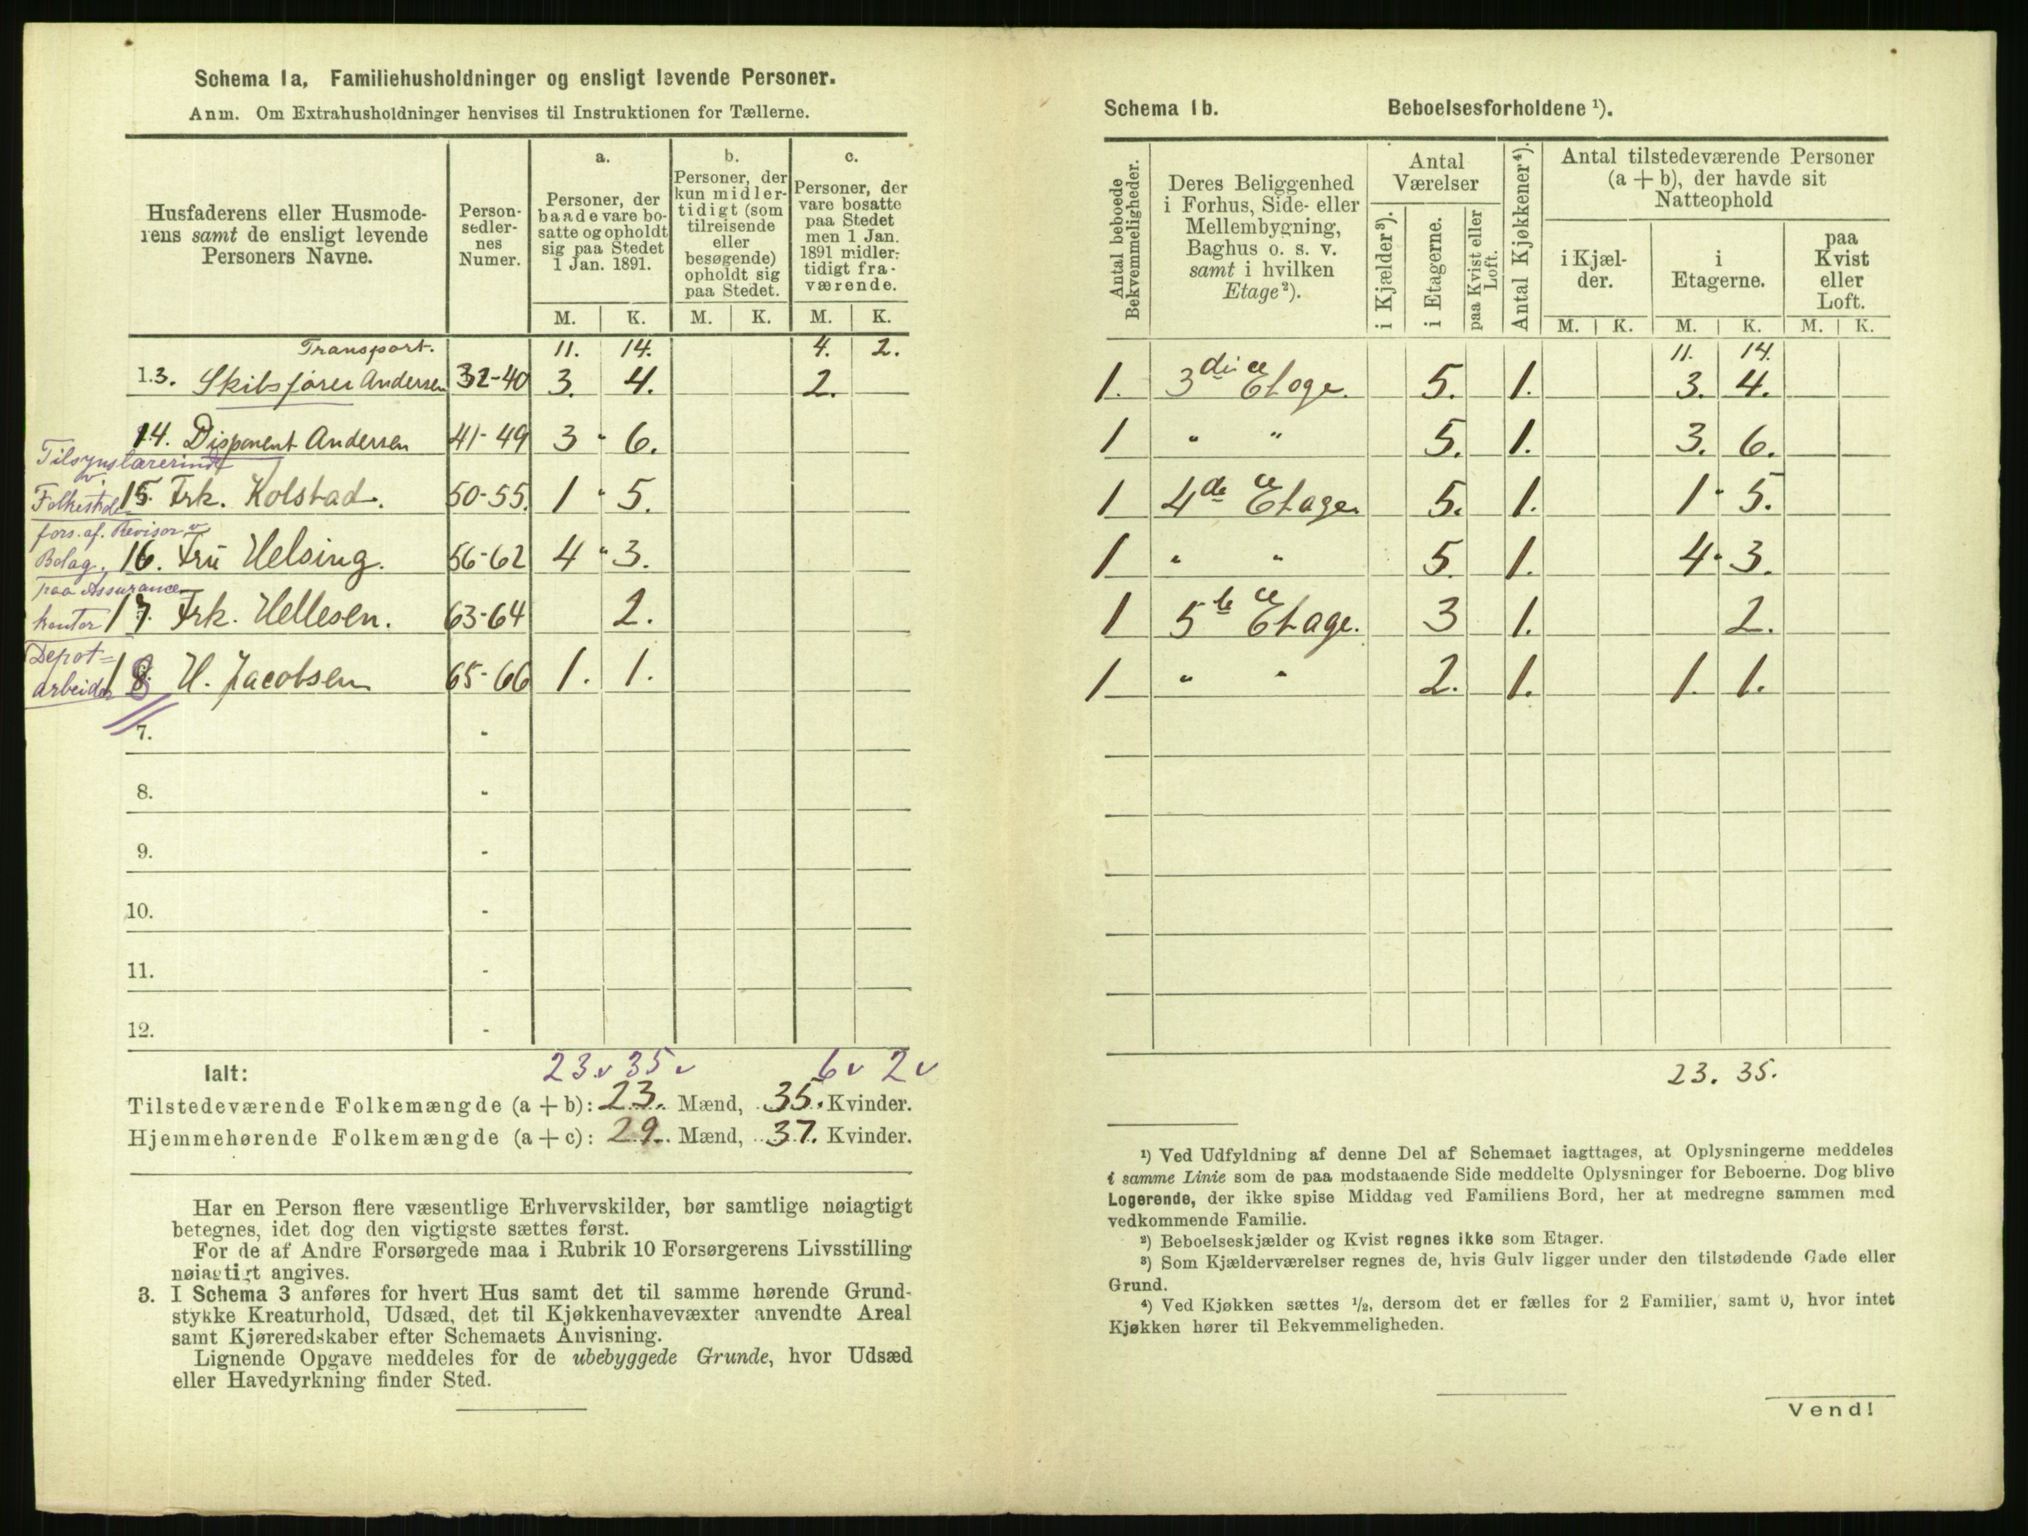 Schema 1a, Familiehusholdninger og ensligt levende Personer.
Anm. Om Extrahusholdninger henvises til Instruktionen for Tællerne.
Husfaderens eller Husmoderens samt de ensligt levende Personers Navne.
Personsedlernes Numer.
a.
Personer, der baade vare bosatte og opholdt sig paa Stedet 1 Jan. 1891.
b.
Personer, der kun midlertidigt (som tilreisende eller besøgende) opholdt sig paa Stedet.
c.
Personer, der vare bosatte paa Stedet men 1 Jan. 1891 midlertidigt fraværende.
M. K. M. K. M. K.
Transport. 11. 14. 4. 2.
13. Skibsfører Andersen 32-40 3. 4. 2.
14. Disponent Andersen 41-49 3 - 6.
Tilsynslærerinde v. Folkeskole
15. Frk. Kolstad. 50-55. 1 - 5.
fors. af. Revisor v Bolag.
16. Fru Helsing. 56-62 4 - 3.
paa Assurance kontor
17. Frk. Hellesen. 63-64 2.
Depot= arbeider
18. H. Jacobsen 65-66 1. 1.
7. -
8. -
9. -
10. -
11. -
12. -
Ialt: 23 v 35 v 6 v 2 v
Tilstedeværende Folkemængde (a + b): 23. Mænd, 35. Kvinder.
Hjemmehørende Folkemængde (a + c): 29. Mænd, 37. Kvinder.
Har en Person flere væsentlige Erhvervskilder, bør samtlige nøiagtigt
betegnes, idet dog den vigtigste sættes først.
For de af Andre Forsørgede maa i Rubrik 10 Forsørgerens Livsstilling
nøiagtigt angives.
3. I Schema 3 anføres for hvert Hus samt det til samme hørende Grund-
stykke Kreaturhold, Udsæd, det til Kjøkkenhavevæxter anvendte Areal
samt Kjøreredskaber efter Schemaets Anvisning.
Lignende Opgave meddeles for de ubebyggede Grunde, hvor Udsæd
eller Havedyrkning finder Sted.
Schema 1b. Beboelsesforholdene ¹).
Antal beboede Bekvemmeligheder.
Deres Beliggenhed i Forhus, Side- eller Mellembygning, Baghus o. s. v. samt i hvilken Etage²).
Antal Værelser
i Kjælder³).
i Etagerne.
paa Kvist eller Loft.
Antal Kjøkkener⁴).
Antal tilstedeværende Personer (a + b), der havde sit Natteophold
i Kjælder.
i Etagerne.
paa Kvist eller Loft.
M. K. M. K. M. K.
11. 14.
1. 3die Etage. 5. 1. 3. 4.
1 " " 5. 1. 3. 6.
1 4de Etage. 5. 1. 1 - 5.
1 " " 5. 1. 4 - 3.
1 5te Etage. 3 1. 2.
1 " " 2. 1. 1. 1.
23. 35.
¹) Ved Udfyldning af denne Del af Schemaet iagttages, at Oplysningerne meddeles
i samme Linie som de paa modstaaende Side meddelte Oplysninger for Beboerne. Dog blive
Logerende, der ikke spise Middag ved Familiens Bord, her at medregne sammen med
vedkommende Familie.
²) Beboelseskjælder og Kvist regnes ikke som Etager.
³) Som Kjælderværelser regnes de, hvis Gulv ligger under den tilstødende Gade eller
Grund.
⁴) Ved Kjøkken sættes ½, dersom det er fælles for 2 Familier, samt 0, hvor intet
Kjøkken hører til Bekvemmeligheden.
Vend!